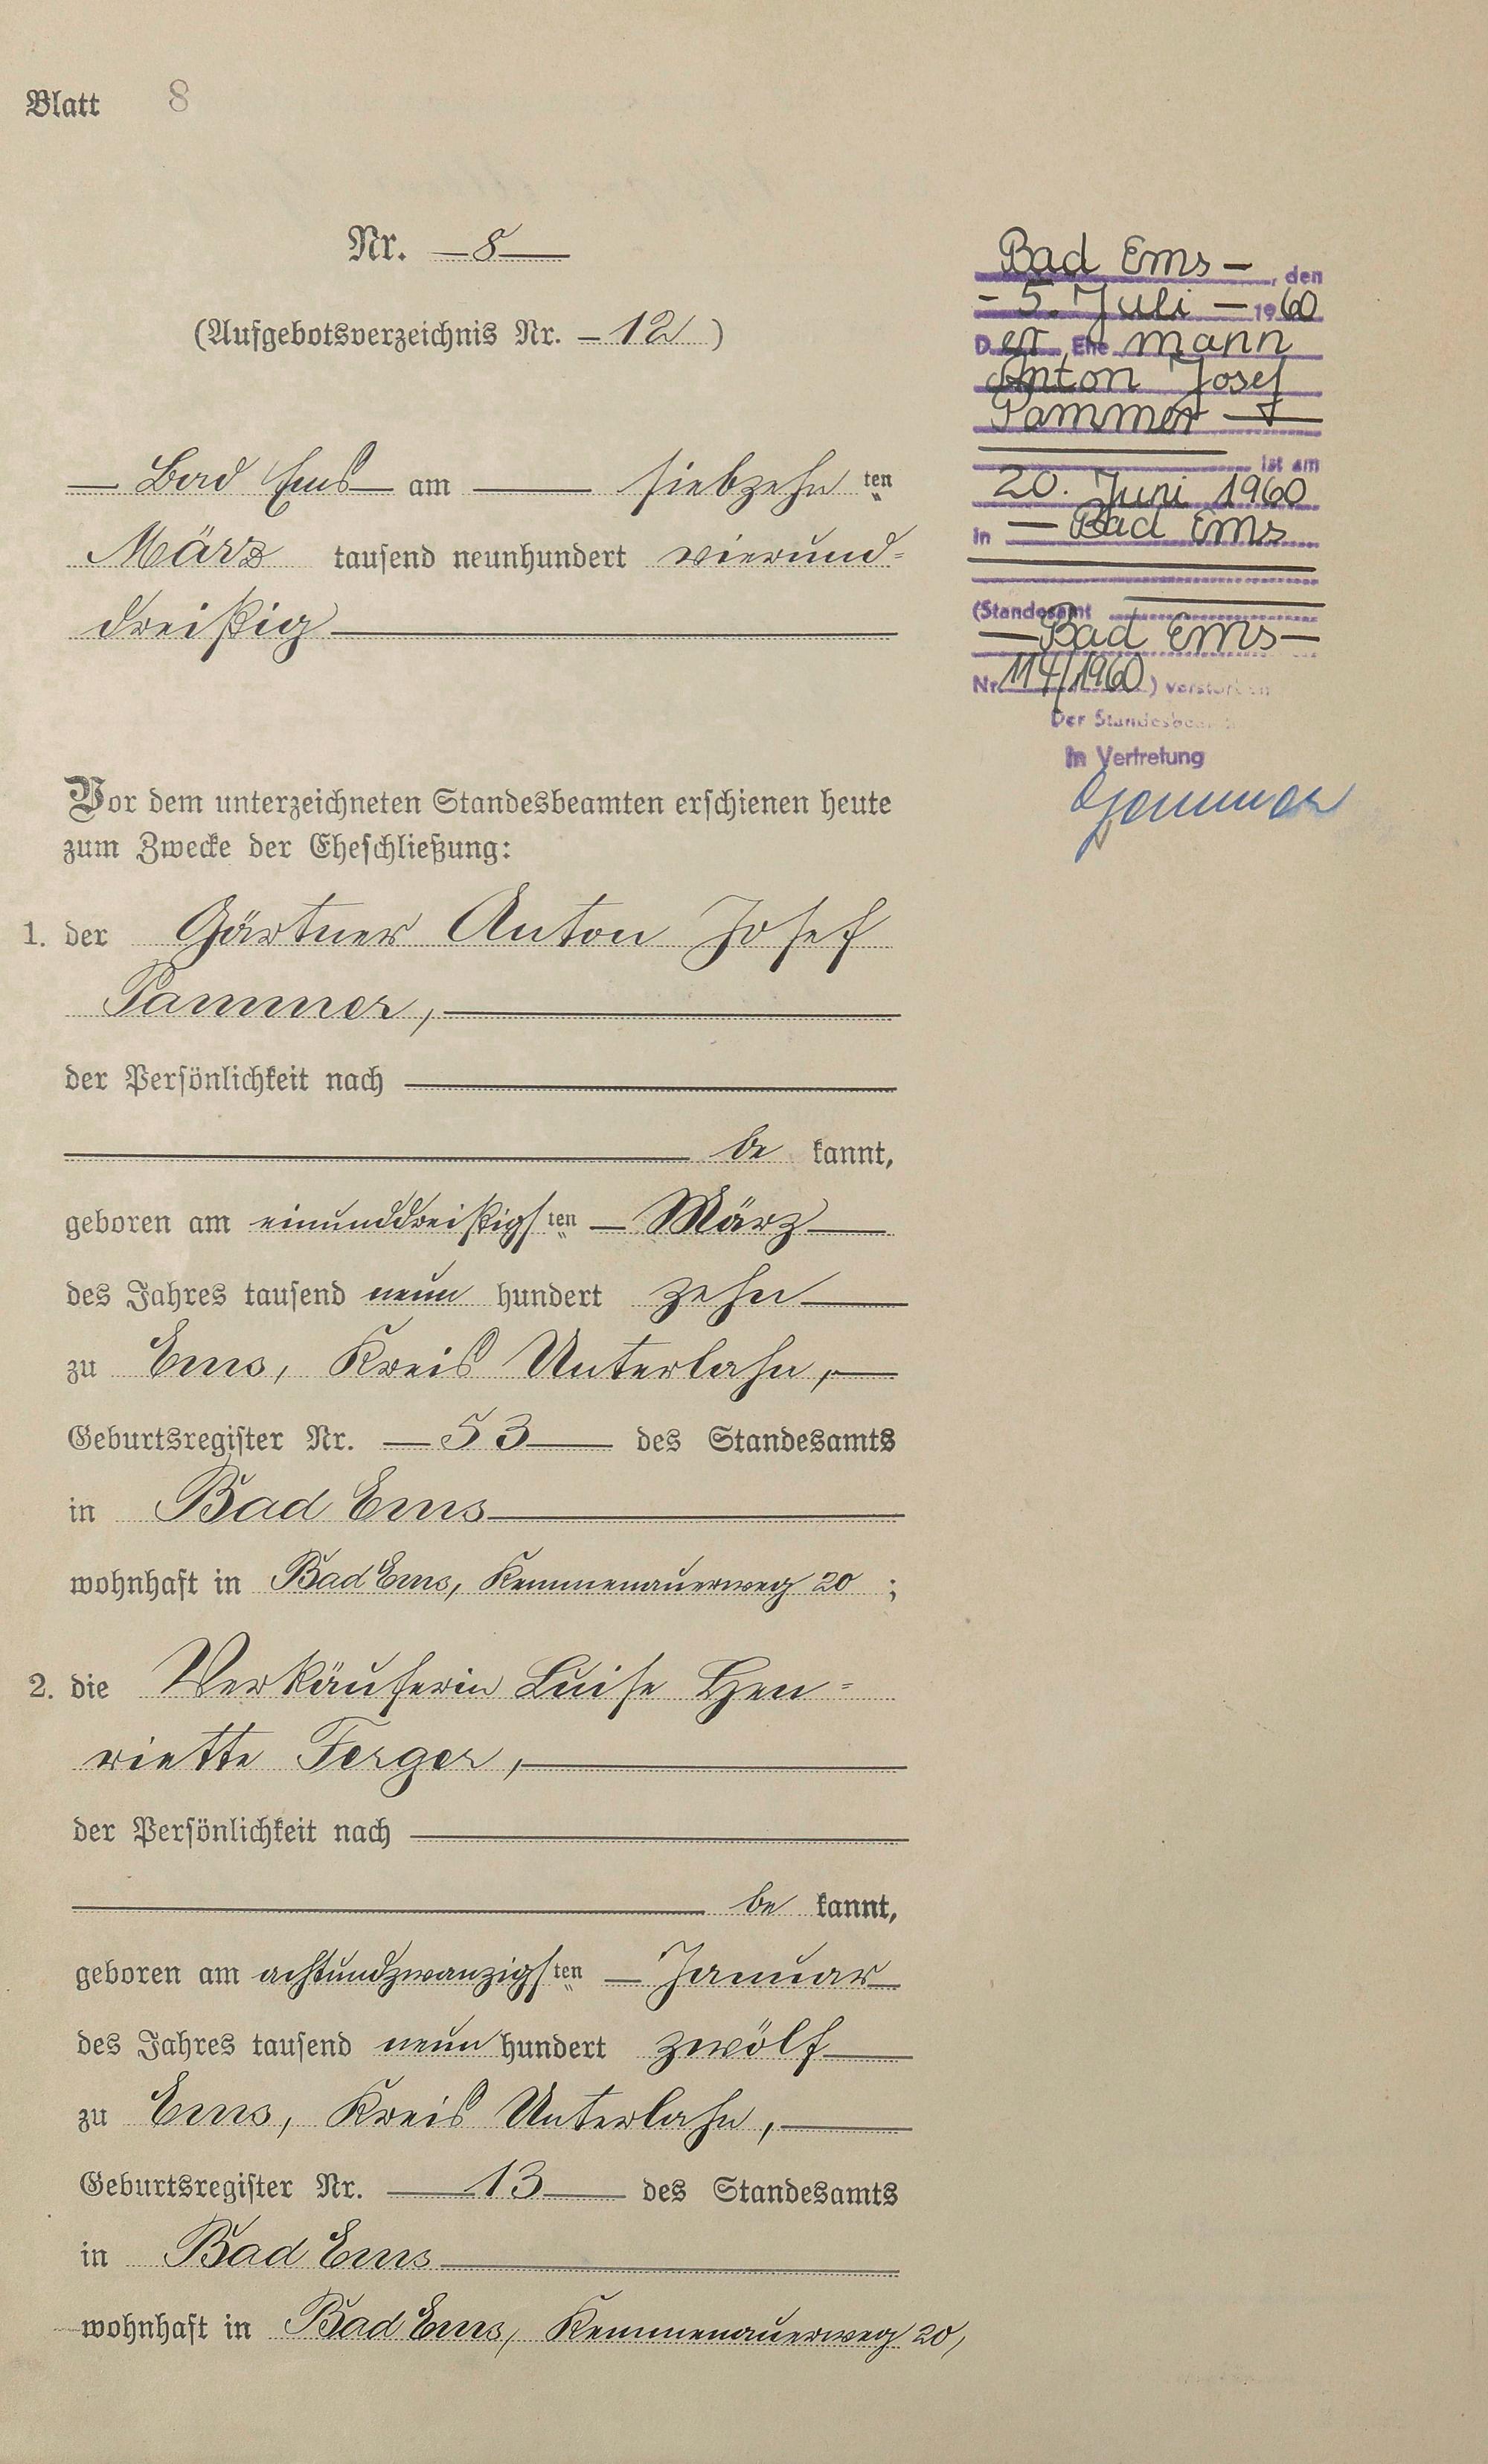 Blatt 8
Nr. — 8 —
(Aufgebotsverzeichnis Nr. — 12 )
— Bad Ems — am — siebzehn ten
März tausend neunhundert vierund=
dreißig —
Vor dem unterzeichneten Standesbeamten erschienen heute
zum Zwecke der Eheschließung:
1. der Gärtner Anton Josef
Pammer, —
der Persönlichkeit nach —
— be kannt,
geboren am einunddreißigs ten — März —
des Jahres tausend neun hundert zehn —
zu Ems, Kreis Unterlahn, —
Geburtsregister Nr. — 53 — des Standesamts
in Bad Ems —
wohnhaft in Bad Ems, Kemmenauerweg 20 ;
2. die Verkäuferin Luise Hen=
riette Ferger, —
der Persönlichkeit nach —
— be kannt,
geboren am achtundzwanzigs ten — Januar —
des Jahres tausend neun hundert zwölf —
zu Ems, Kreis Unterlahn, —
Geburtsregister Nr. — 13 — des Standesamts
in Bad Ems —
wohnhaft in Bad Ems, Kemmenauerweg 20,
Bad Ems — , den
- 5. Juli — 1960
Der Ehe mann
Anton Josef
Pammer —
ist am
20. Juni 1960
in — Bad Ems
(Standesamt
— Bad Ems —
Nr. 114/1960 ) verstorben
Der Standesbeamte
In Vertretung